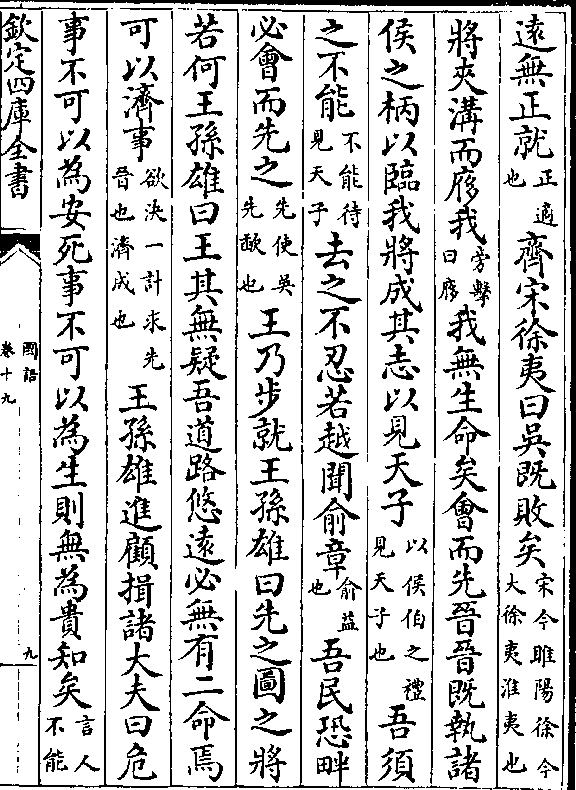 遠無正就正適也齊宋徐夷曰吳既敗矣宋今睢陽徐今大徐夷淮夷也
將夾溝而㢋我旁擊曰㢋我無生命矣會而先晉晉既執諸
侯之柄以臨我將成其志以見天子以侯伯之禮見天子也吾須
之不能不能待見天子去之不忍若越聞俞章俞益也吾民恐畔
必會而先之先使吳先歃也王乃步就王孫雄曰先之圖之將
若何王孫雄曰王其無疑吾道路悠遠必無有二命焉
可以濟事欲決一計求先晉也濟成也王孫雄進顧揖諸大夫曰危
事不可以為安死事不可以為生則無為貴知矣言人不能
欽定四庫全書
國語
卷十九
九